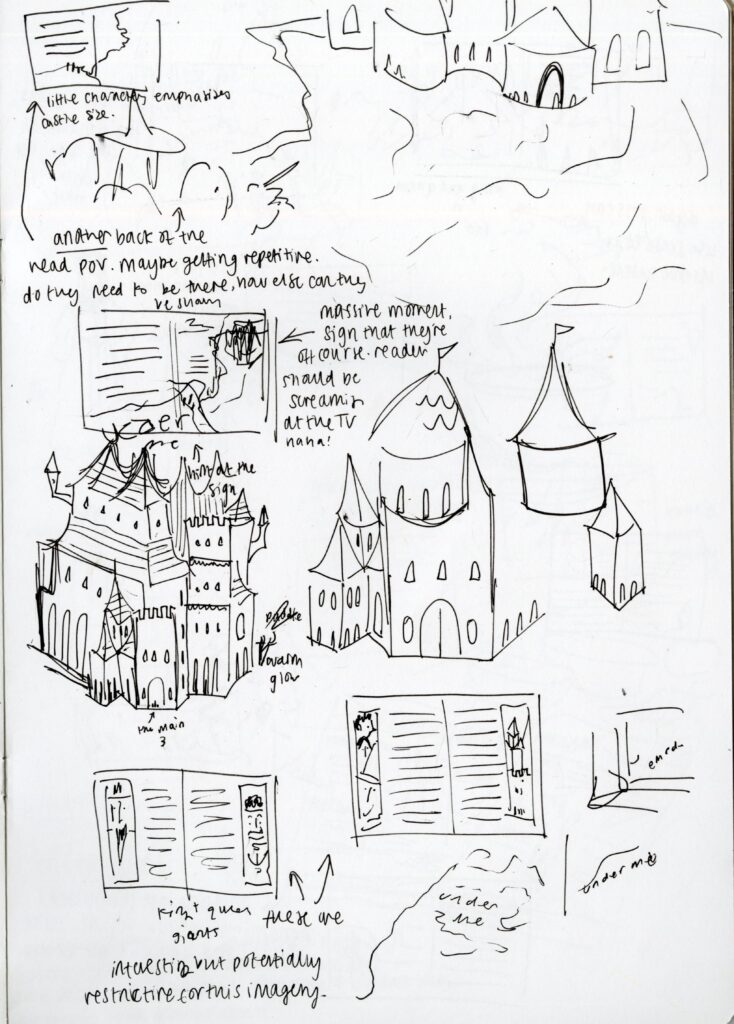 little characters emphasizes
castle size.
another back of the
head pov. maybe getting repetitive.
do they need to be there, how else can they
be shown
massive moment,
sign that they're
off course. reader
should be
screaming
at the TV
haha!
hint at the
sign
warm
glow
the main
3
king + queen
giants
these are
interesting but potentially
restrictive for this imagery.
under
me
under me